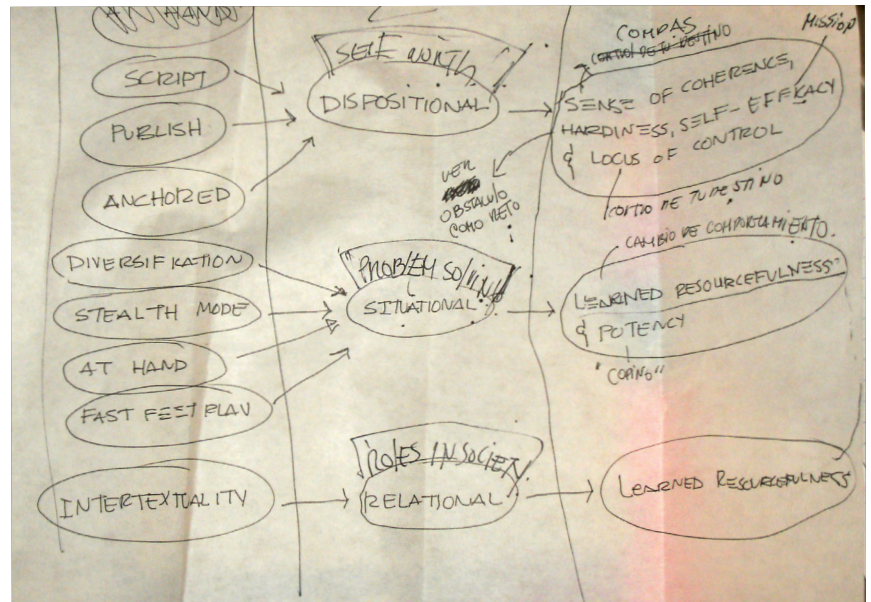 SCRIPT
PUBLISH
ANCHORED
DIVERSIFIKATION
STEALTH MODE
AT HAND
FAST FEET PLAY
INTERTEXTUALITY
SELF WORTH
DISPOSITIONAL
"PROBLEM SOLVING"
SITUATIONAL
ROLES IN SOCIETY
RELATIONAL
COMPAS
CONTROL DE TU DESTINO
MISSION
SENSE OF COHERENCE,
HARDINESS, SELF-EFFIKACY
& LOCUS OF CONTROL
VER
OBSTACULO
COMO RETO
CONTROL DE TU DESTINO
CAMBIO DE COMPORTAMIENTO.
LEARNED RESOURCEFULNESS"
& POTENCY
"COPING"
LEARNED RESOURCEFULNESS